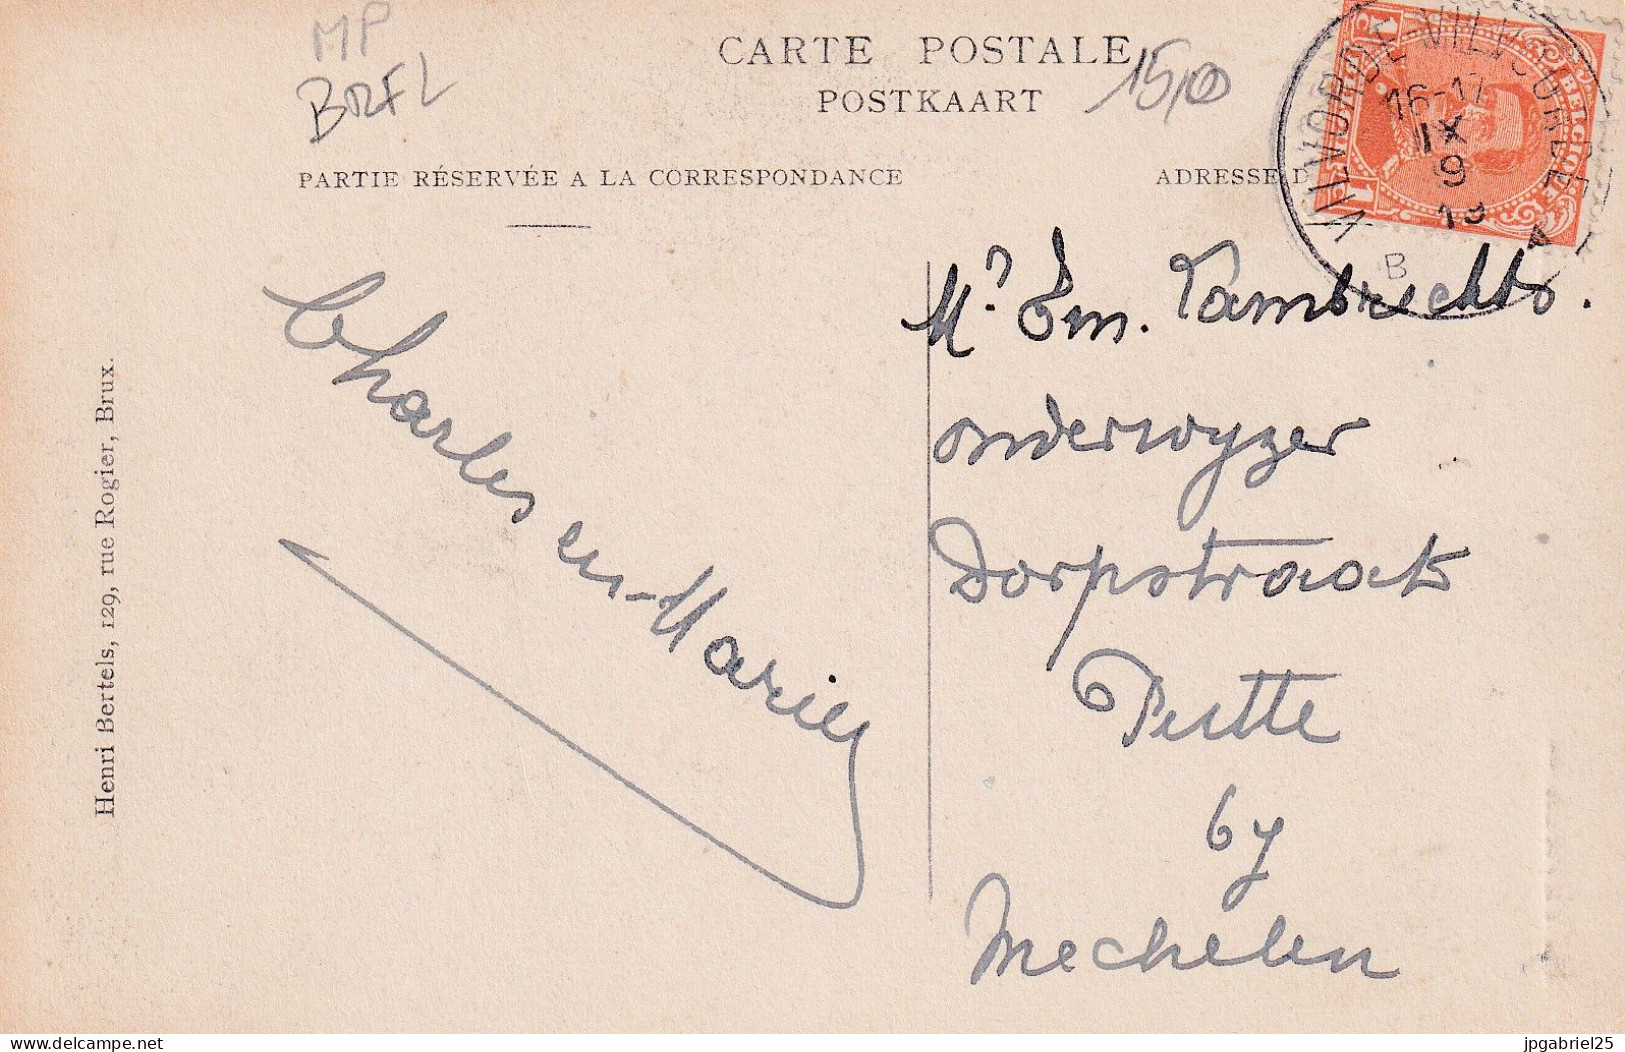 MP
CARTE POSTALE
15,00
POSTKAART
PARTIE RÉSERVÉE A LA CORRESPONDANCE
ADRESSE D
VILVORDE-VILVOORDE
16-17
IX
9
19
A
B
BELGIE
1 1
Mr. Em. Lambrechts.
onderwyzer
Dorpstraat
Putte
by
Mechelen
Charles en Marie
Henri Bertels, 129, rue Rogier, Brux.
delcampe.net
jpgabriel25